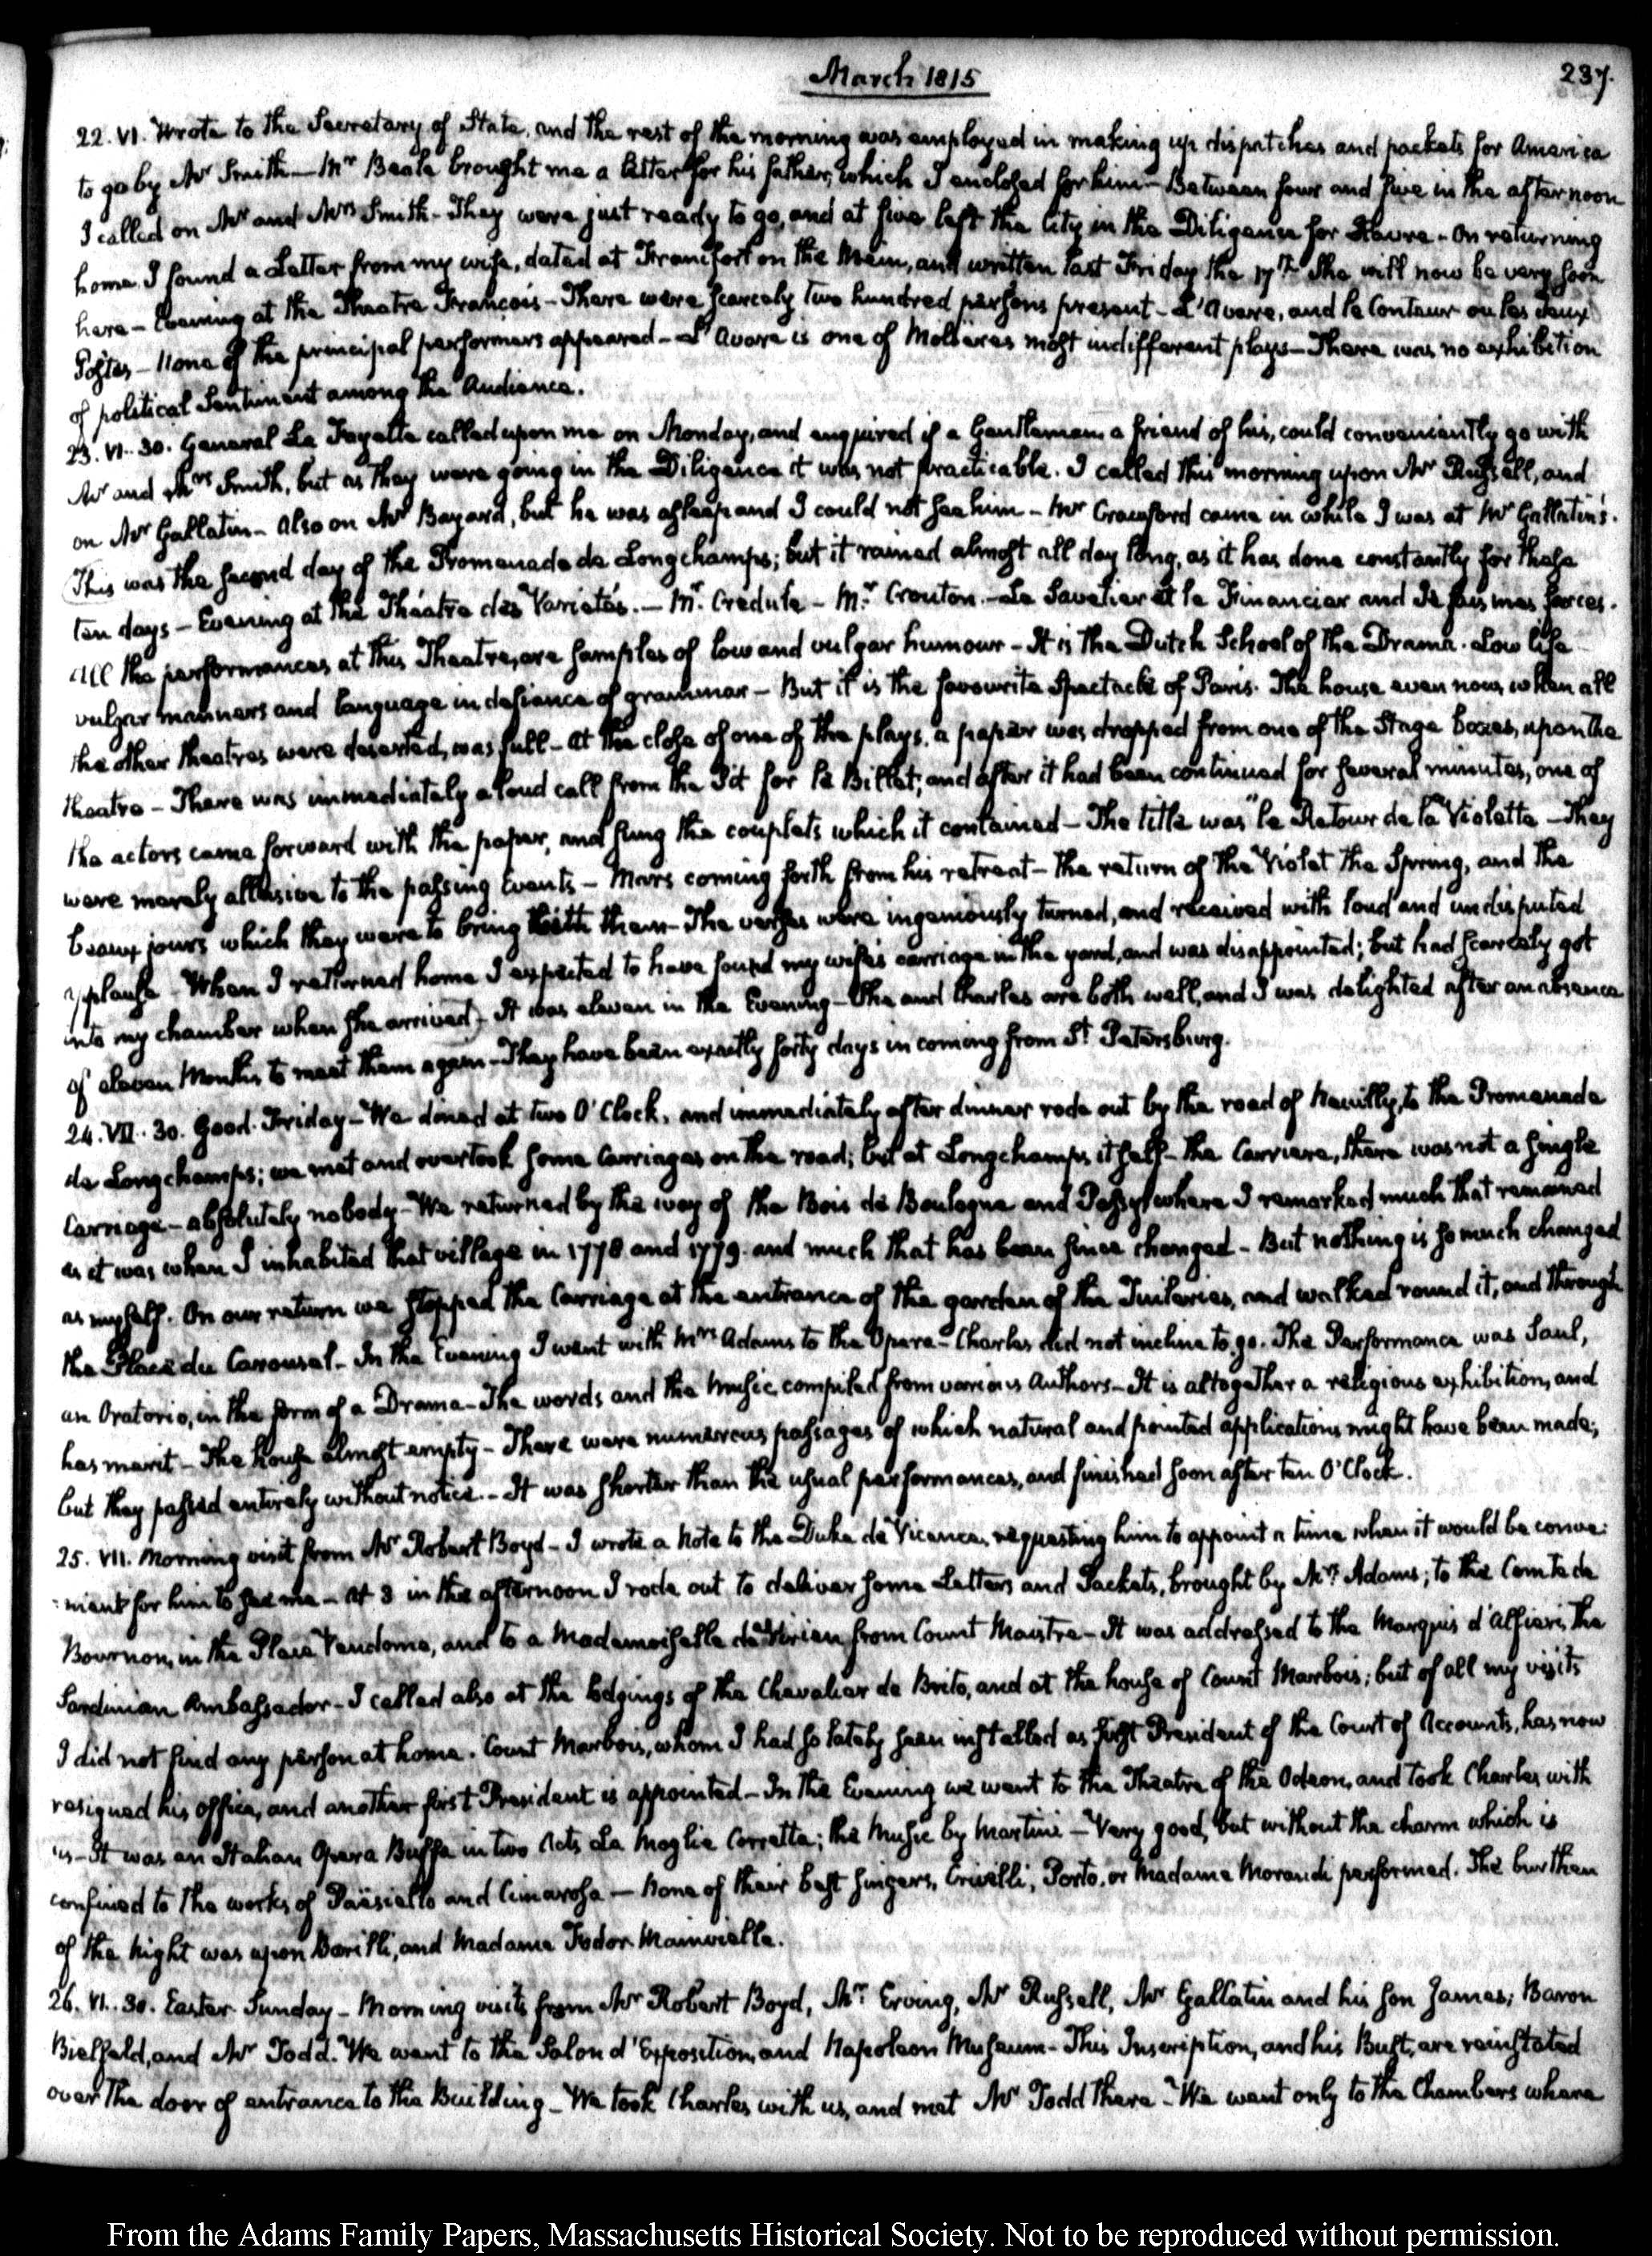 March 1815
237.
22. VI. Wrote to the Secretary of State, and the rest of the morning was employed in making up dispatches and packets for America
to go by Mr Smith — Mr Beale brought me a letter for his father, which I enclosed for him — Between four and five in the afternoon
I called on Mr and Mrs Smith — They were just ready to go, and at five left the City in the Diligence for Havre — On returning
home I found a Letter from my wife, dated at Francfort on the Mein, and written last Friday the 17th She will now be very soon
here — Evening at the Theatre François — There were scarcely two hundred persons present — L'Avare, and le Conteur ou les deux
Postes — None of the principal performers appeared — L'Avare is one of Molieres most indifferent plays — There was no exhibition
of political Sentiment among the Audience.
23. VI. 30. General La Fayette called upon me on Monday, and enquired if a Gentleman, a friend of his, could conveniently go with
Mr and Mrs Smith, but as they were going in the Diligence it was not practicable. I called this morning upon Mr Russell, and
on Mr Gallatin — Also on Mr Bayard, but he was asleep and I could not see him — Mr Crawford came in while I was at Mr Gallatin's.
This was the second day of the Promenade de Longchamps; but it rained almost all day long, as it has done constantly for these
ten days — Evening at the Théatre des Varietés. — Mr. Credule — Mr. Crouton. — Le Savetier et le Financier and Je fais mes farces.
All the performances at this Theatre, are samples of low and vulgar humour — It is the Dutch School of the Drama. Low life
vulgar manners and language in defiance of grammar — But it is the favourite Spectacle of Paris. The house even now, when all
the other theatres were deserted, was full — At the close of one of the plays, a paper was dropped from one of the Stage boxes, upon the
theatre — There was immediately a loud call from the Pit for le Billet; and after it had been continued for several minutes, one of
the actors came forward with the paper, and sung the couplets which it contained — The title was "le Retour de la Violette — They
were merely allusive to the passing Events — Mars coming forth from his retreat — the return of the Violet the Spring, and the
beaux jours which they were to bring with them — The verses were ingeniously turned, and received with loud and undisputed
applause — When I returned home I expected to have found my wife's carriage in the yard, and was disappointed; but had scarcely got
into my chamber when she arrived — It was eleven in the Evening — She and Charles are both well, and I was delighted after an absence
of eleven Months to meet them again — They have been exactly forty days in coming from St Petersburg.
24. VII. 30. Good Friday — We dined at two O'Clock, and immediately after dinner rode out by the road of Neuilly, to the Promenade
de Longchamps; we met and overtook some Carriages on the road; but at Longchamps itself — the Carriere, there was not a single
Carriage — absolutely nobody — We returned by the way of the Bois de Boulogne and Passy where I remarked much that remained
as it was when I inhabited that village in 1778 and 1779. and much that has been since changed — But nothing is so much changed
as myself. On our return we stopped the Carriage at the entrance of the garden of the Tuileries, and walked round it, and through
the Place du Carrousel — In the Evening I went with Mrs Adams to the Opera — Charles did not incline to go. The Performance was Saul,
an Oratorio, in the form of a Drama — The words and the Music, compiled from various Authors — It is altogether a religious exhibition, and
has merit — The house almost empty — There were numerous passages of which natural and pointed applications might have been made;
but they passed entirely without notice. — It was shorter than the usual performances, and finished soon after ten O'Clock.
25. VII. Morning visit from Mr Robert Boyd — I wrote a Note to the Duke de Vicence, requesting him to appoint a time when it would be conve:
:nient for him to see me — At 3 in the afternoon I rode out to deliver some Letters and Packets, brought by Mrs Adams; to the Comte de
Bournon, in the Place Vendome, and to a Mademoiselle de Virieu from Count Maistre — It was addressed to the Marquis d'Alfieri, the
Sardinian Ambassador — I called also at the lodgings of the Chevalier de Brito, and at the house of Count Marbois; but of all my visits
I did not find any person at home. Count Marbois, whom I had so lately seen installed as first President of the Court of Accounts, has now
resigned his office, and another first President is appointed — In the Evening we went to the Theatre of the Odeon, and took Charles with
us — It was an Italian Opera Buffa in two Acts La Moglie Corretta; the Music by Martini — Very good, but without the charm which is
confined to the works of Paësiello and Cimarosa — None of their best singers, Crivelli, Porto, or Madame Morandi performed. The burthen
of the Night was upon Barilli, and Madame Fodor Mainvielle.
26. VI. 30. Easter Sunday — Morning visits from Mr Robert Boyd, Mr Erving, Mr Russell, Mr Gallatin and his son James; Baron
Bielfeld, and Mr Todd. We went to the Salon d'Exposition, and Napoleon Museum — This Inscription, and his Bust, are reinstated
over the door of entrance to the Building — We took Charles with us, and met Mr Todd there — We went only to the Chambers where
From the Adams Family Papers, Massachusetts Historical Society. Not to be reproduced without permission.